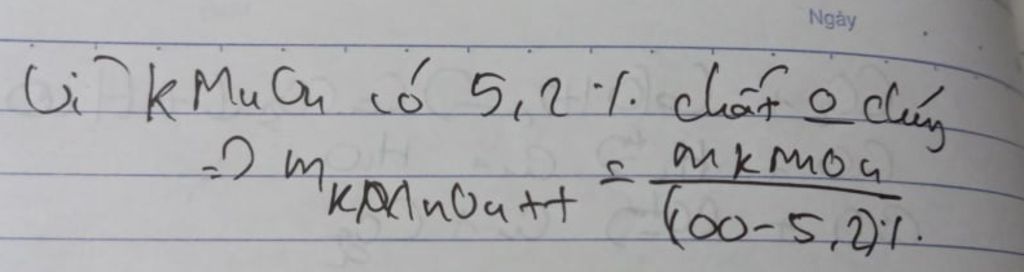 Ngày
Vì KMnO4 có 5,2% chất 0 cháy
=> m KMnO4 tt = m KMnO4 / (100-5,2)%.